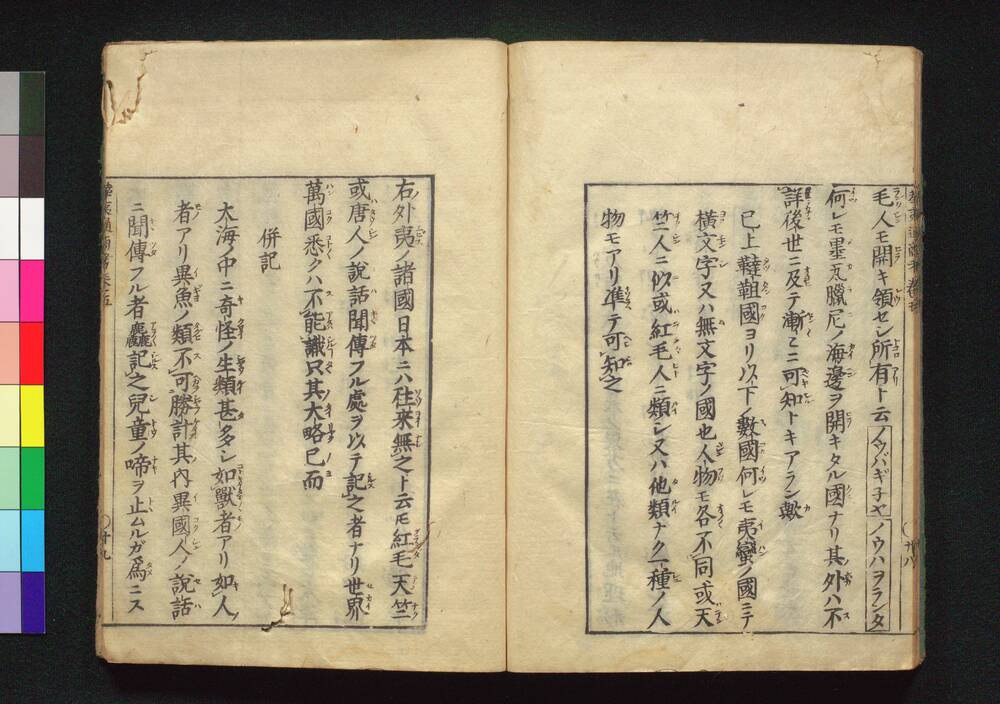 毛人モ開キ領セシ所有ト云ノウバギ子ヤノウハヲランダ
何レモ墨瓦臘尼ノ海邊ヲ開キタル國ナリ其外ハ不
詳後世ニ及テ漸々ニ可知トキアラン歟
已上韃靼國ヨリ以下ノ數國何レモ夷蠻ノ國ニテ
横文字又ハ無文字ノ國也人物モ各不同或天
竺人ニ似或紅毛人ニ類シ又ハ他類ナク一種ノ人
物モアリ準テ可知之
右外夷ノ諸國日本ニハ往来無之ト云𪜈紅毛天竺
或唐人ノ説話聞傳フル處ヲ以テ記之者ナリ世界
萬國悉クハ不能識只其大略已而
併記
大海ノ中ニ奇怪ノ生類甚多シ如獸者アリ如人
者アリ異魚ノ類不可勝計其内異國人ノ説話
ニ聞傳フル者麤記之兒童ノ啼ヲ止ムルガ為ニス